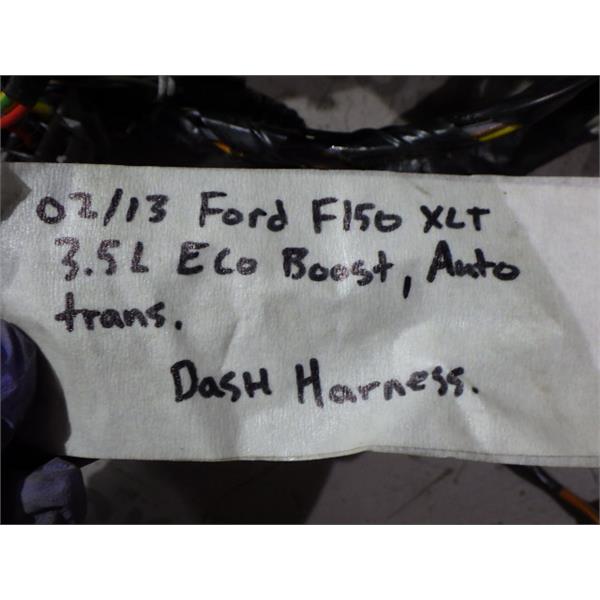 02/13 Ford F150 XLT
3.5L Eco Boost, Auto
trans.
Dash Harness.